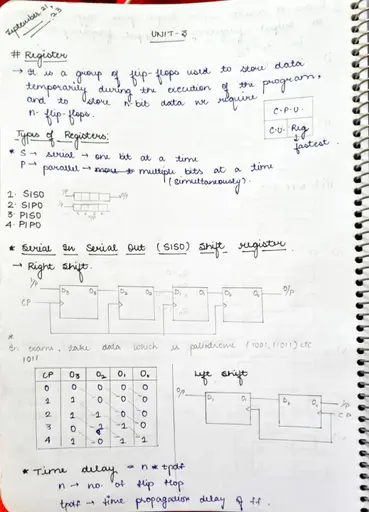 September 21, 23
UNIT-3
# Register
→ It is a group of flip-flops used to store data
temporarily during the execution of the program,
and to store n-bit data we require
n-flip-flops.
C.P.U.
C.U. Reg
fastest.
Types of Registers:
* S → serial → one bit at a time
P → parallel → multiple bits at a time
(simultaneously).
1. SISO
2. SIPO
3. PISO
4. PIPO
* Serial In Serial Out (SISO) Shift register
→ Right Shift.
I/P
O/P
CP
*
In exams, take data which is palindrome (1001, 11011) etc
1011
CP O3 O2 O1 O0
0 0 0 0 0
1 1 0 0 0
2 1 1 0 0
3 0 1 1 0
4 1 0 1 1
Left Shift
O/P
I/P
CP
* Time delay = n * tpdf
n → no. of flip flop
tpdf → time propagation delay of ff.